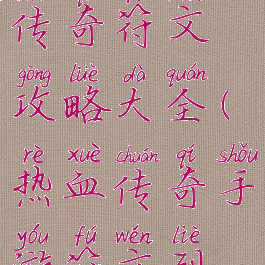 传奇符文
gōng lüè dà quán
攻略大全(
rè xuè chuán qí shǒu
热血传奇手
yóu fú wén liè
游符文列